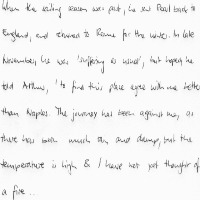 When the sailing season was past, he sent Read back to
England, and returned to Rome for the winter. In late
November, he was 'suffering as usual', but hoped, he
told Arthur, 'to find this place agree with me better
than Naples. The journey has been against me, as
there has been much rain and damp, but the
temperature is high & I have not yet thought of
a fire ..